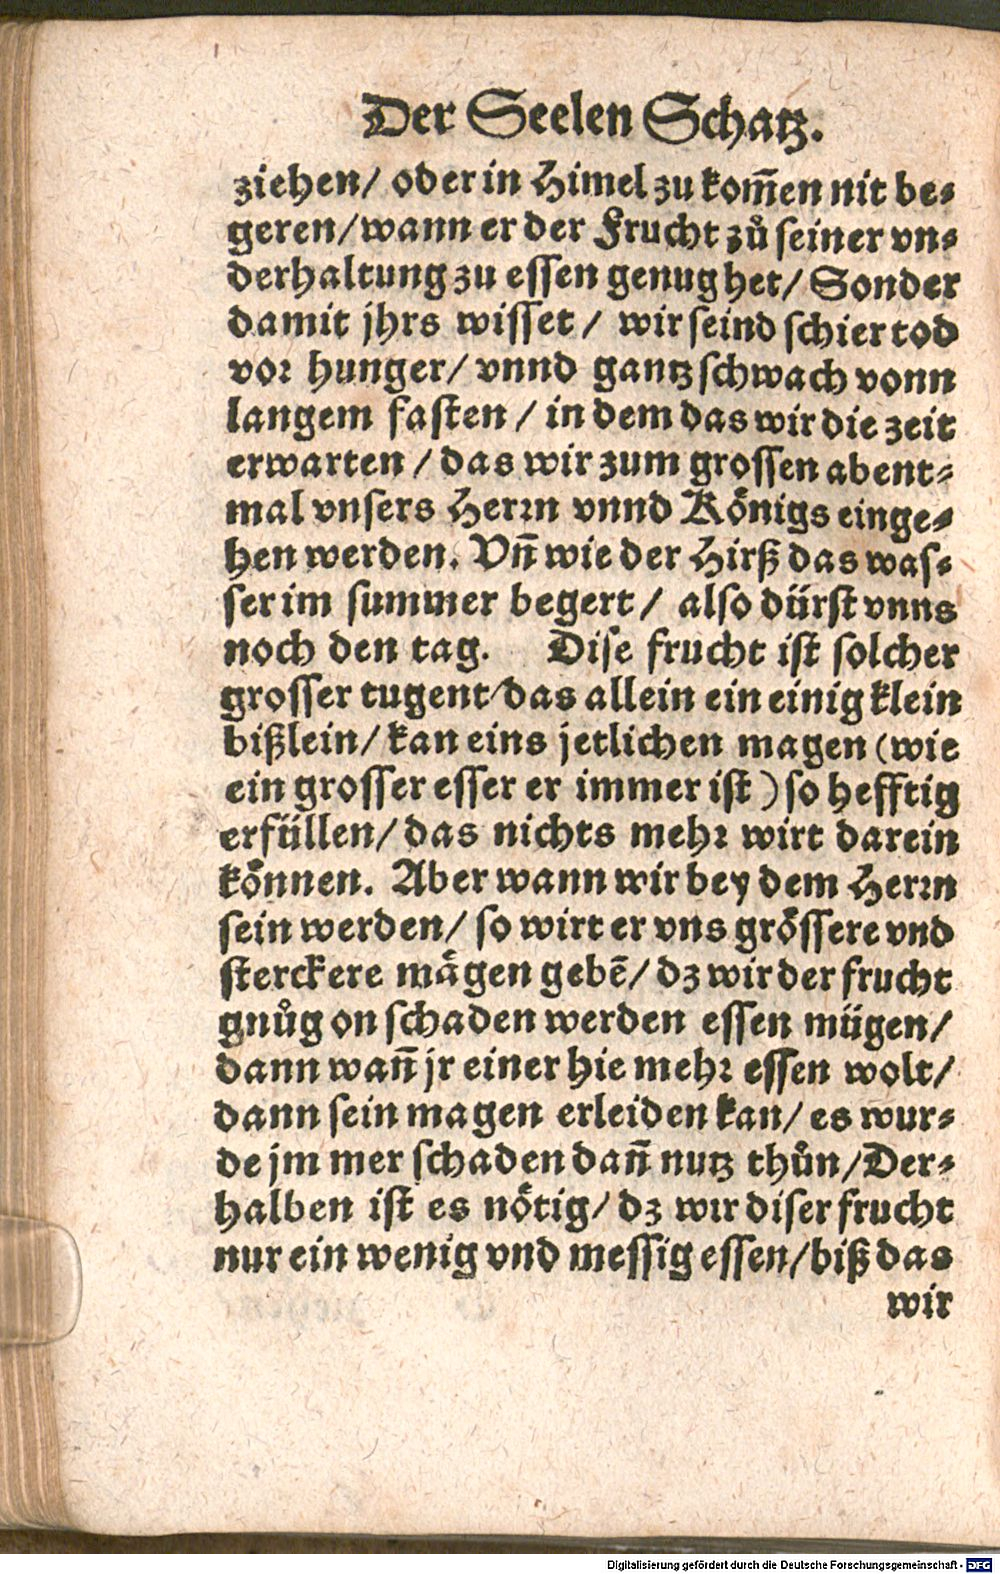 Der Seelen Schatz.
ziehen/ oder in Himel zu kom̄en nit be⸗
geren/ wann er der Frucht zů seiner vn⸗
derhaltung zu essen genug het/ Sonder
damit jhrs wisset/ wir seind schier tod
vor hunger/ vnnd gantz schwach vonn
langem fasten/ in dem das wir die zeit
erwarten/ das wir zum grossen abent⸗
mal vnsers Herrn vnnd Königs einge⸗
hen werden. Vn̄ wie der Hirß das was⸗
ser im summer begert/ also dürst vnns
noch den tag. Dise frucht ist solcher
grosser tugent/ das allein ein einig klein
bißlein/ kan eins jetlichen magen (wie
ein grosser esser er immer ist) so hefftig
erfüllen/ das nichts mehr wirt darein
können. Aber wann wir bey dem Herrn
sein werden/ so wirt er vns grössere vnd
sterckere mägen gebē/ dz wir der frucht
gnůg on schaden werden essen mügen/
dann wan̄ jr einer hie mehr essen wolt/
dann sein magen erleiden kan/ es wur⸗
de jm mer schaden dan̄ nutz thůn/ Der⸗
halben ist es nötig/ dz wir diser frucht
nur ein wenig vnd messig essen/ biß das
wir
Digitalisierung gefördert durch die Deutsche Forschungsgemeinschaft - DFG